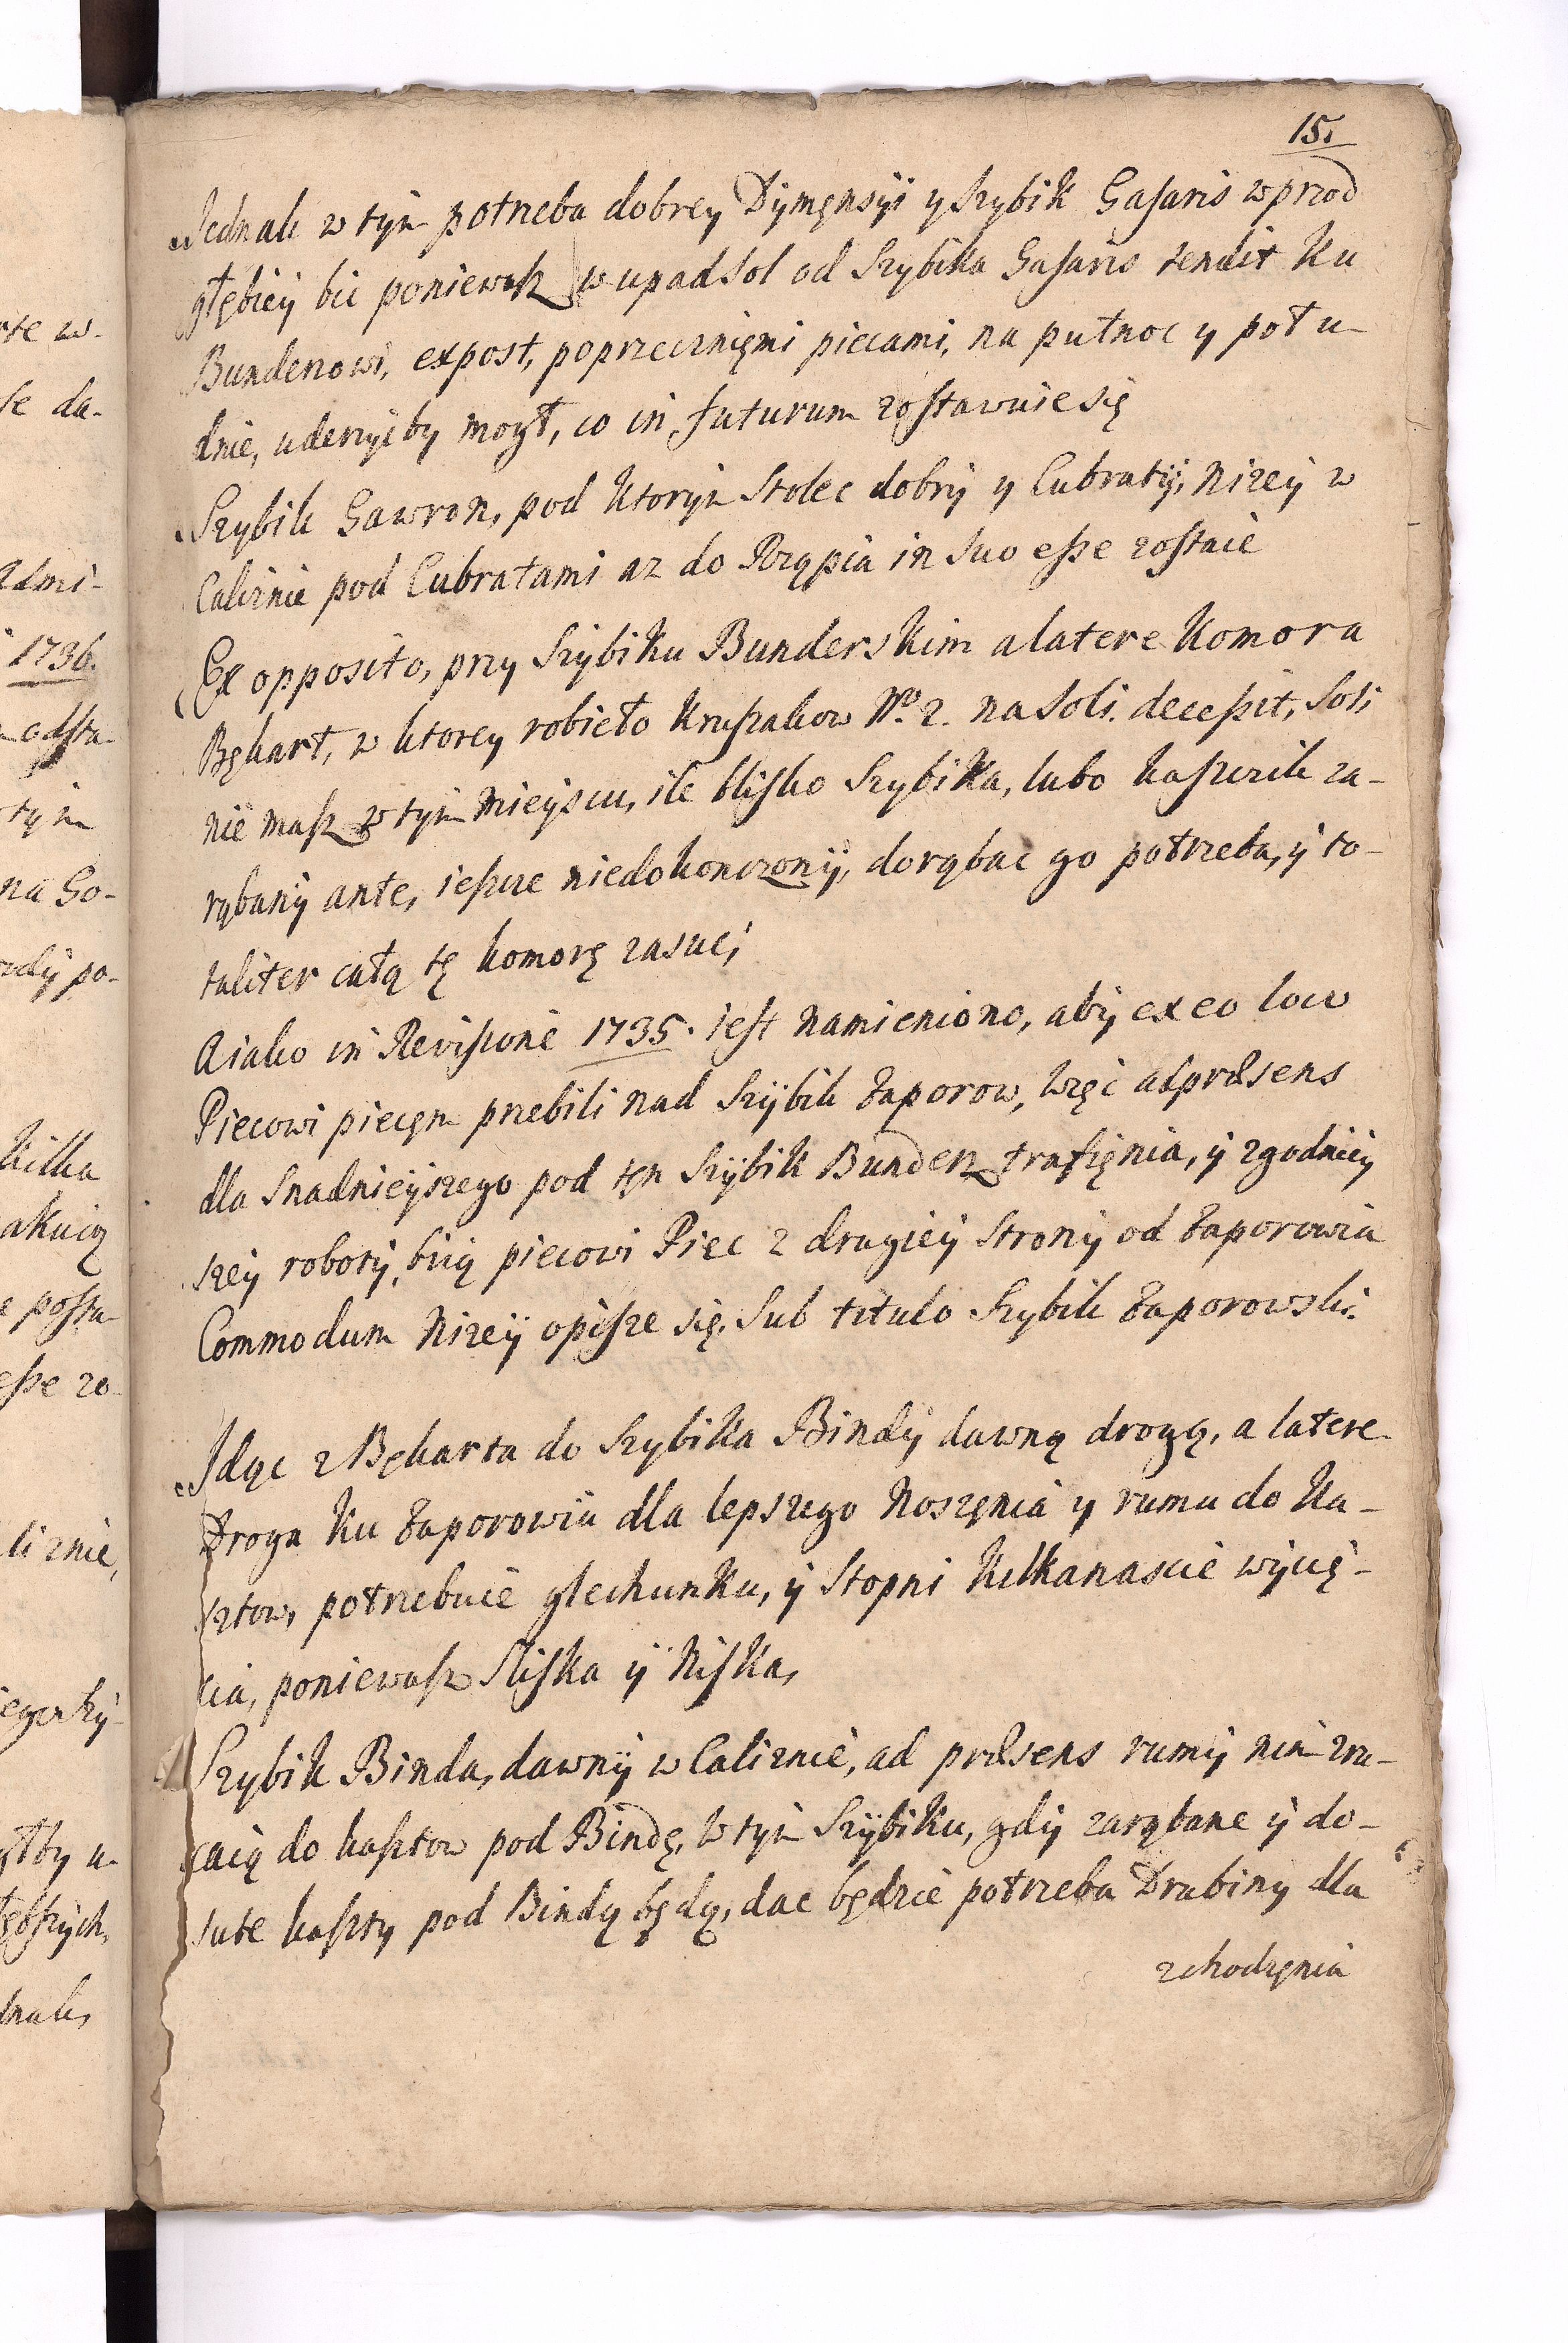 15.
Jednak w tym potrzeba dobrey Dymęnsyi y Szybik Gasaris wprzod
głębiey bić poniewasz w upad sol od Szybika Gasaris tendit ku
Bunderowi, expost, poprzecznięmi piecami, na pułnoc y połu-
dnie, uderzyćby mogł, co in futurum zostawuie się
Szybik Gawron, pod ktorym Stolec dobry y Cubraty, nizey w
Caliznie pod Cubratami az do Rząpia in suo esse zostaie
Ex opposito, przy Szybiku Bunderskim a latere Komora
Bękart, w ktorey robieło Kruszakow No. 2. na soli. decessit, soli
nie masz w tym mieyscu, ile blisko Szybika, lubo kaszcik za-
rąbany ante, ieszcze niedokonczony, dorąbac go potrzeba, y to-
taliter całą tę komorę zasuci
A iako in Revisione 1735. iest namieniono, aby ex eo loco
Piecowi piecęm przebili nad Szybik Zaporow, więc ad præsens
dla snadnieyszego pod tęn Szybik Bunderz trafięnia, y zgodniey
szey roboty, biią piecowi Piec z drugiey strony od Zaporowia
Commodum nizey opisze się, sub titulo Szybik Zaporowski.
Jdąc z Bękarta do Szybika Bindy dawną drogą, a latere
Droga ku Zaporowiu dla lepszego noszęnia y rumu do ka-
sztow, potrzebuie glechunku, y stopni kilkanascie wycię-
cia, poniewasz sliska y niska,
Szybik Binda, dawny w Caliznie, ad præsens rumy nim zru-
caią do kasztow pod Bindę, w tym Szybiku, gdy zarąbane y do-
sute kaszty pod Bindą będą, dac będzie potrzeba Drabiny dla
zchodzęnia
te w-
se da-
1736.
odsta-
tym
na Go-
po-
kilka
akuią
posta-
esse zo-
liznie,